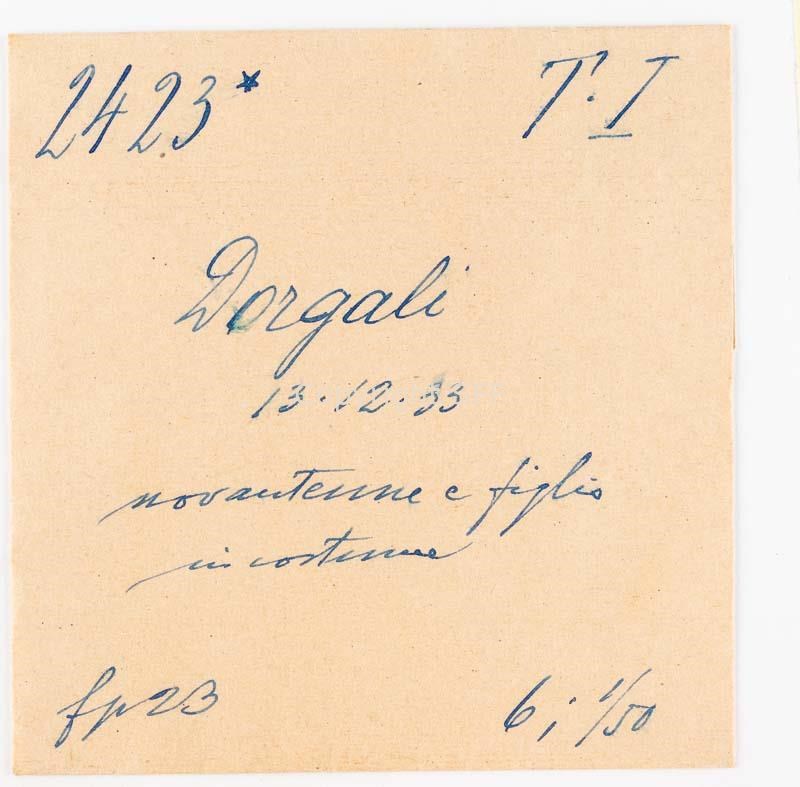 2423* T. I
Dorgali
13.12.33
novantenne e figlio
in costume
fp 23 6; 1/50